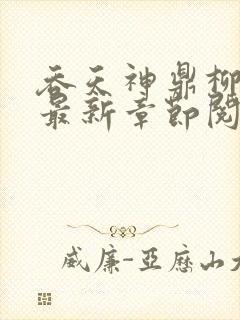 吞天神鼎柳
最新章節閱
威廉-亞歷山大